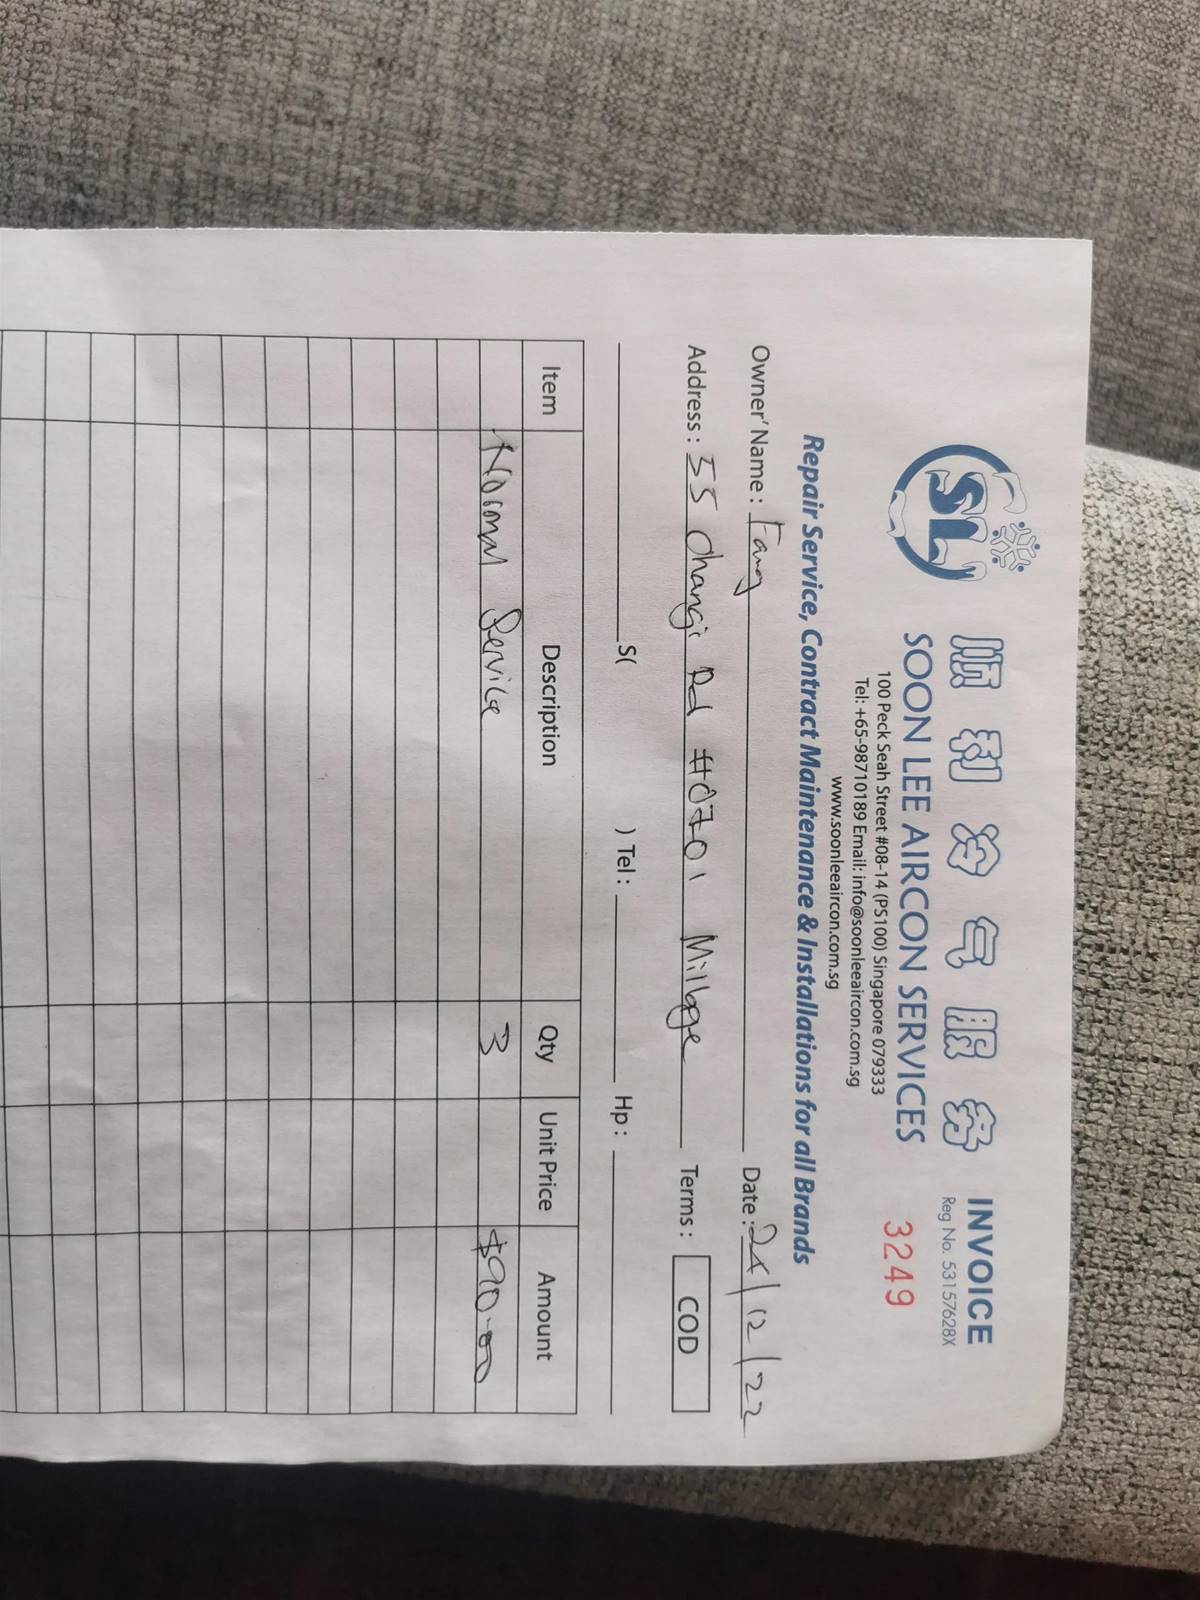 SLJ
顺利冷气服务
INVOICE
SOON LEE AIRCON SERVICES
Reg No. 53157628X
100 Peck Seah Street #08-14 (PS100) Singapore 079333
3249
Tel: +65-98710189 Email: info@soonleeaircon.com.sg
www.soonleeaircon.com.sg
Repair Service, Contract Maintenance & Installations for all Brands
Owner' Name : Fang Date : 24/12/22
Address : 55 Changi Rd #0701 Millage Terms : COD
S( ) Tel : Hp :
Item Description Qty Unit Price Amount
Normal Service 3 $90-00